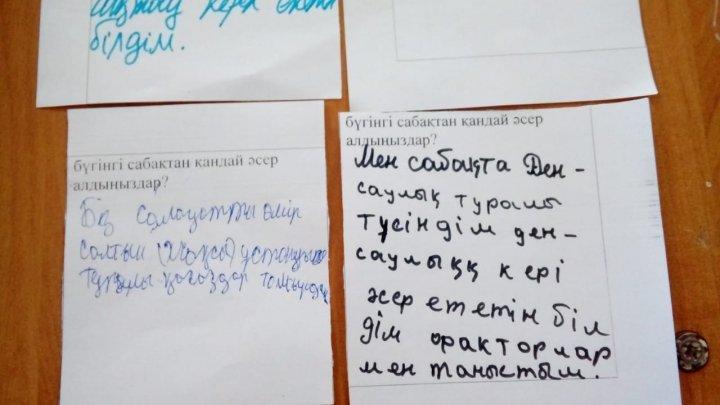 білдім.
бүгінгі сабақтан қандай әсер
алдыңыздар?
Біз салауатты өмір
салтын (жақсы)
туралы қағаздар
бүгінгі сабақтан қандай әсер
алдыңыздар?
Мен сабақта Ден-
саулық туралы
түсіндім ден-
саулыққ кері
әсер ететін біл
дім факторлар
мен таныстым.